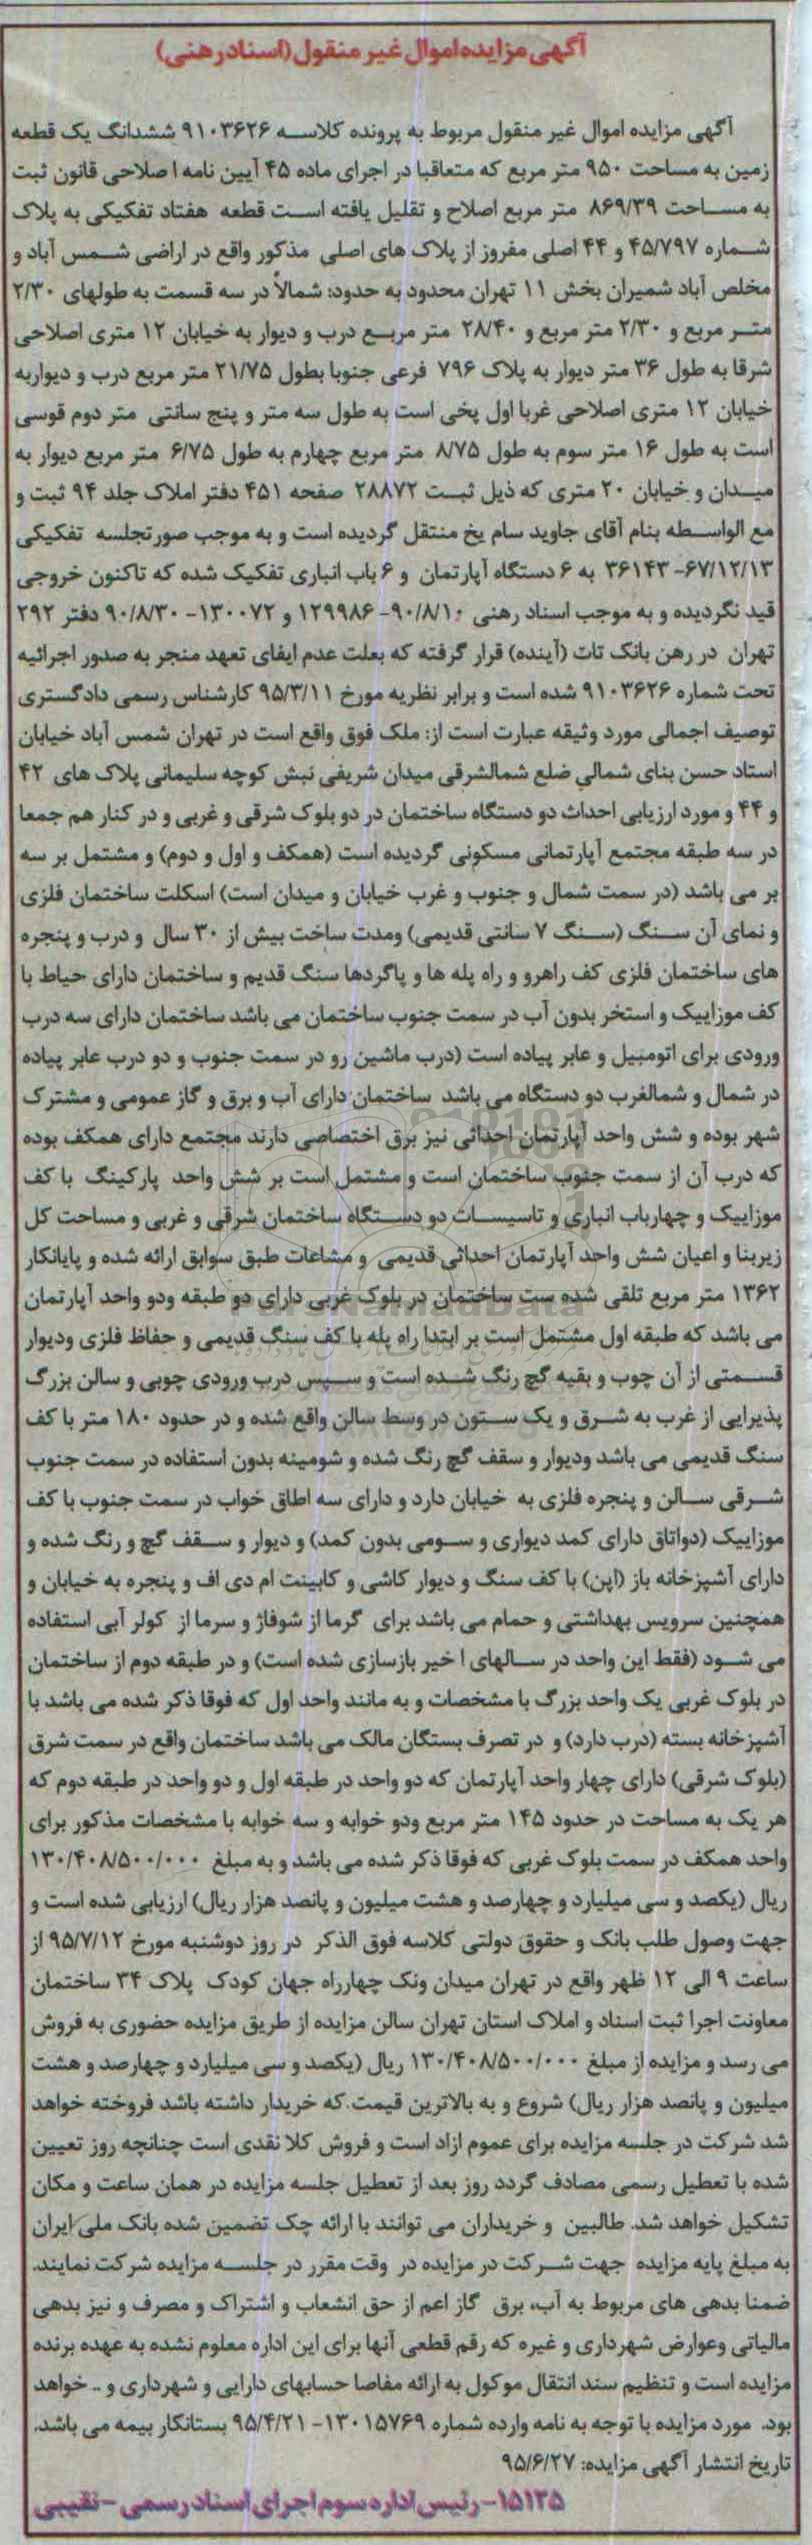 آگهی مزایده اموال غیر منقول (اسناد رهنی)
آگهی مزایده اموال غیر منقول مربوط به پرونده کلاسه ۹۱۰۳۶۲۶ ششدانگ یک قطعه
زمین به مساحت ۹۵۰ متر مربع که متعاقبا در اجرای ماده ۴۵ آیین نامه اصلاحی قانون ثبت
به مساحت ۸۶۹/۳۹ متر مربع اصلاح و تقلیل یافته است قطعه هفتاد تفکیکی به پلاک
شماره ۴۵/۷۹۷ و ۴۴ اصلی مفروز از پلاک های اصلی مذکور واقع در اراضی شمس آباد و
مخلص آباد شمیران بخش ۱۱ تهران محدود به حدود: شمالاً در سه قسمت به طولهای ۲/۳۰
متر مربع و ۲/۳۰ متر مربع و ۲۸/۴۰ متر مربع درب و دیوار به خیابان ۱۲ متری اصلاحی
شرقا به طول ۳۶ متر دیوار به پلاک ۷۹۶ فرعی جنوبا بطول ۲۱/۷۵ متر مربع درب و دیواربه
خیابان ۱۲ متری اصلاحی غربا اول پخی است به طول سه متر و پنج سانتی متر دوم قوسی
است به طول ۱۶ متر سوم به طول ۸/۷۵ متر مربع چهارم به طول ۶/۷۵ متر مربع دیوار به
میدان و خیابان ۲۰ متری که ذیل ثبت ۲۸۸۷۲ صفحه ۴۵۱ دفتر املاک جلد ۹۴ ثبت و
مع الواسطه بنام آقای جاوید سام یخ منتقل گردیده است و به موجب صورتجلسه تفکیکی
۳۶۱۴۳ -۶۷/۱۲/۱۳ به ۶ دستگاه آپارتمان و ۶ باب انباری تفکیک شده که تاکنون خروجی
قید نگردیده و به موجب اسناد رهنی ۱۲۹۹۸۶ -۹۰/۸/۱۰ و ۱۳۰۰۷۲ -۹۰/۸/۳۰ دفتر ۲۹۲
تهران در رهن بانک تات (آینده) قرار گرفته که بعلت عدم ایفای تعهد منجر به صدور اجرائیه
تحت شماره ۹۱۰۳۶۲۶ شده است و برابر نظریه مورخ ۹۵/۳/۱۱ کارشناس رسمی دادگستری
توصیف اجمالی مورد وثیقه عبارت است از: ملک فوق واقع است در تهران شمس آباد خیابان
استاد حسن بنای شمالی ضلع شمالشرقی میدان شریفی نبش کوچه سلیمانی پلاک های ۴۲
و ۴۴ و مورد ارزیابی احداث دو دستگاه ساختمان در دو بلوک شرقی و غربی و در کنار هم جمعا
در سه طبقه مجتمع آپارتمانی مسکونی گردیده است (همکف و اول و دوم) و مشتمل بر سه
بر می باشد (در سمت شمال و جنوب و غرب خیابان و میدان است) اسکلت ساختمان فلزی
و نمای آن سنگ (سنگ ۷ سانتی قدیمی) ومدت ساخت بیش از ۳۰ سال و درب و پنجره
های ساختمان فلزی کف راهرو و راه پله ها و پاگردها سنگ قدیم و ساختمان دارای حیاط با
کف موزاییک و استخر بدون آب در سمت جنوب ساختمان می باشد ساختمان دارای سه درب
ورودی برای اتومبیل و عابر پیاده است (درب ماشین رو در سمت جنوب و دو درب عابر پیاده
در شمال و شمالغرب دو دستگاه می باشد ساختمان دارای آب و برق و گاز عمومی و مشترک
شهر بوده و شش واحد آپارتمان احداثی نیز برق اختصاصی دارند مجتمع دارای همکف بوده
که درب آن از سمت جنوب ساختمان است و مشتمل است بر شش واحد پارکینگ با کف
موزاییک و چهارباب انباری و تاسیسات دو دستگاه ساختمان شرقی و غربی و مساحت کل
زیربنا و اعیان شش واحد آپارتمان احداثی قدیمی و مشاعات طبق سوابق ارائه شده و پایانکار
۱۳۶۲ متر مربع تلقی شده ست ساختمان در بلوک غربی دارای دو طبقه ودو واحد آپارتمان
می باشد که طبقه اول مشتمل است بر ابتدا راه پله با کف سنگ قدیمی و حفاظ فلزی ودیوار
قسمتی از آن چوب و بقیه گچ رنگ شده است و سپس درب ورودی چوبی و سالن بزرگ
پذیرایی از غرب به شرق و یک ستون در وسط سالن واقع شده و در حدود ۱۸۰ متر با کف
سنگ قدیمی می باشد ودیوار و سقف گچ رنگ شده و شومینه بدون استفاده در سمت جنوب
شرقی سالن و پنجره فلزی به خیابان دارد و دارای سه اطاق خواب در سمت جنوب با کف
موزاییک (دواتاق دارای کمد دیواری و سومی بدون کمد) و دیوار و سقف گچ و رنگ شده و
دارای آشپزخانه باز (اپن) با کف سنگ و دیوار کاشی و کابینت ام دی اف و پنجره به خیابان و
همچنین سرویس بهداشتی و حمام می باشد برای گرما از شوفاژ و سرما از کولر آبی استفاده
می شود (فقط این واحد در سالهای اخیر بازسازی شده است) و در طبقه دوم از ساختمان
در بلوک غربی یک واحد بزرگ با مشخصات و به مانند واحد اول که فوقا ذکر شده می باشد با
آشپزخانه بسته (درب دارد) و در تصرف بستگان مالک می باشد ساختمان واقع در سمت شرق
(بلوک شرقی) دارای چهار واحد آپارتمان که دو واحد در طبقه اول و دو واحد در طبقه دوم که
هر یک به مساحت در حدود ۱۴۵ متر مربع ودو خوابه و سه خوابه با مشخصات مذکور برای
واحد همکف در سمت بلوک غربی که فوقا ذکر شده می باشد و به مبلغ ۱۳۰/۴۰۸/۵۰۰/۰۰۰
ریال (یکصد و سی میلیارد و چهارصد و هشت میلیون و پانصد هزار ریال) ارزیابی شده است و
جهت وصول طلب بانک و حقوق دولتی کلاسه فوق الذکر در روز دوشنبه مورخ ۹۵/۷/۱۲ از
ساعت ۹ الی ۱۲ ظهر واقع در تهران میدان ونک چهارراه جهان کودک پلاک ۳۴ ساختمان
معاونت اجرا ثبت اسناد و املاک استان تهران سالن مزایده از طریق مزایده حضوری به فروش
می رسد و مزایده از مبلغ ۱۳۰/۴۰۸/۵۰۰/۰۰۰ ریال (یکصد و سی میلیارد و چهارصد و هشت
میلیون و پانصد هزار ریال) شروع و به بالاترین قیمت که خریدار داشته باشد فروخته خواهد
شد شرکت در جلسه مزایده برای عموم ازاد است و فروش کلا نقدی است چنانچه روز تعیین
شده با تعطیل رسمی مصادف گردد روز بعد از تعطیل جلسه مزایده در همان ساعت و مکان
تشکیل خواهد شد. طالبین و خریداران می توانند با ارائه چک تضمین شده بانک ملی ایران
به مبلغ پایه مزایده جهت شرکت در مزایده در وقت مقرر در جلسه مزایده شرکت نمایند.
ضمنا بدهی های مربوط به آب، برق گاز اعم از حق انشعاب و اشتراک و مصرف و نیز بدهی
مالیاتی وعوارض شهرداری و غیره که رقم قطعی آنها برای این اداره معلوم نشده به عهده برنده
مزایده است و تنظیم سند انتقال موکول به ارائه مفاصا حسابهای دارایی و شهرداری و .. خواهد
بود. مورد مزایده با توجه به نامه وارده شماره ۱۳۰۱۵۷۶۹ -۹۵/۴/۲۱ بستانکار بیمه می باشد.
تاریخ انتشار آگهی مزایده: ۹۵/۶/۲۷
۱۵۱۳۵- رئیس اداره سوم اجرای اسناد رسمی - نقیبی